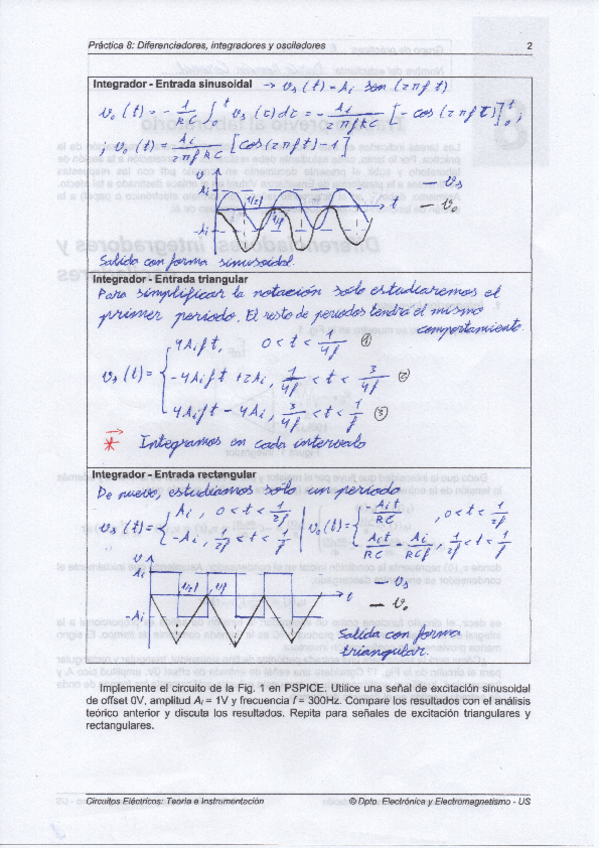 Práctica 8: Diferenciadores, integradores y osciladores 2
Integrador - Entrada sinusoidal → vs(t) = Ai sen(2πft)
vo(t) = - 1/RC ∫₀ᵗ vs(τ)dτ = - Ai/2πfRC [-cos(2πfτ)]₀ᵗ ;
; vo(t) = Ai/2πfRC [cos(2πft)-1]
v
Ai
1/2f 1/f
t
-Ai
— vs
— vo
Salida con forma sinusoidal.
Integrador - Entrada triangular
Para simplificar la notación solo estudiaremos el
primer periodo. El resto de periodos tendrá el mismo
comportamiento.
vs(t) = { 4Aift, 0<t<1/4f ①
-4Aift+2Ai, 1/4f<t<3/4f ②
4Aift-4Ai, 3/4f<t<1/f ③
* → Integramos en cada intervalo
Integrador - Entrada rectangular
De nuevo, estudiamos sólo un periodo
vs(t) = { Ai, 0<t<1/2f | vo(t) = { -Ait/RC, 0<t<1/2f
-Ai, 1/2f<t<1/f | Ait/RC - Ai/RCf, 1/2f<t<1/f
v
Ai
1/2f 1/f
t
-Ai
— vs
— vo
Salida con forma
triangular.
Implemente el circuito de la Fig. 1 en PSPICE. Utilice una señal de excitación sinusoidal
de offset 0V, amplitud Ai = 1V y frecuencia f = 300Hz. Compare los resultados con el análisis
teórico anterior y discuta los resultados. Repita para señales de excitación triangulares y
rectangulares.
Circuitos Eléctricos: Teoría e Instrumentación © Dpto. Electrónica y Electromagnetismo - US